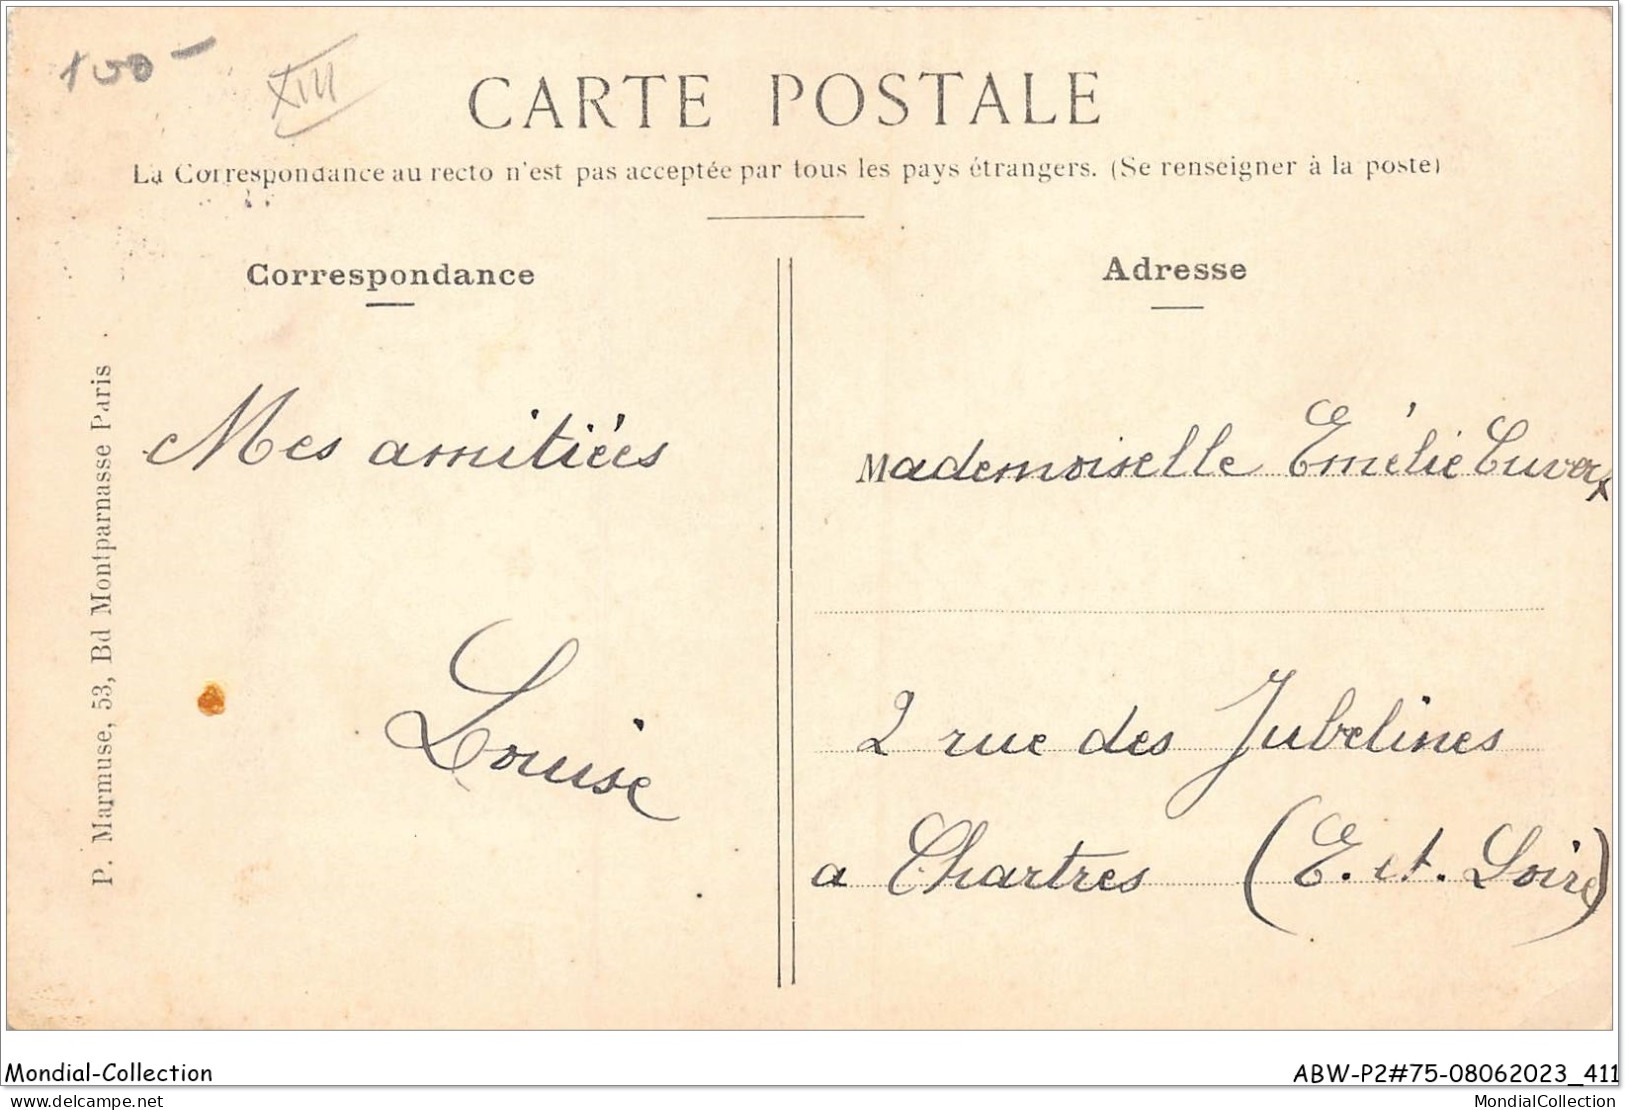 150-
XIII
CARTE POSTALE
La Correspondance au recto n'est pas acceptée par tous les pays étrangers. (Se renseigner à la poste)
Correspondance
Mes amitiées
Louise
P. Marmuse, 53, Bd Montparnasse Paris
Adresse
Mademoiselle Emélie
2 rue des Jubelines
a Chartres (E. et. Loire)
Mondial-Collection
ABW-P2#75-08062023_411
delcampe.net
MondialCollection